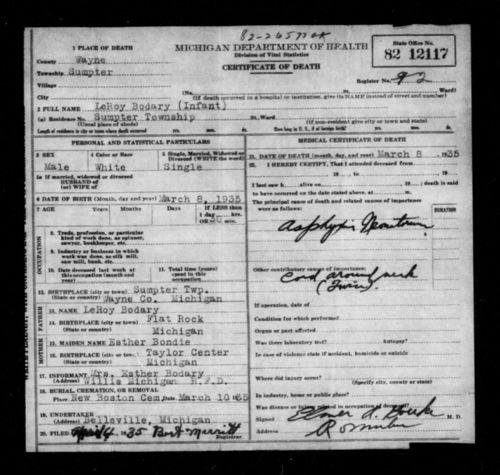 82-265
1 PLACE OF DEATH
MICHIGAN DEPARTMENT OF HEALTH
Division of Vital Statistics
CERTIFICATE OF DEATH
State Office No.
82 12117
County Wayne
Township Sumpter
Register No. 42
Village
City (No. St. Ward)
(If death occurred in a hospital or institution, give its NAME instead of street and number)
2 FULL NAME LeRoy Bodary (Infant)
(a) Residence No. Sumpter Township St., Ward.
(Usual place of abode) (If non-resident give city or town and state)
Length of residence in city or town where death occurred yrs. mos. ds. How long in U. S., if of foreign birth? yrs. mos. ds.
PERSONAL AND STATISTICAL PARTICULARS
3 SEX 4 Color or Race 5 Single, Married, Widowed or Divorced (WRITE the word)
Male White Single
5a If married, widowed or divorced
HUSBAND of
(or) WIFE of
6 DATE OF BIRTH (Month, day, and year) March 8, 1935
7 AGE Years Months Days If LESS than
1 day hrs.
OR 30 min.
OCCUPATION
8. Trade, profession, or particular kind of work done, as spinner, sawyer, bookkeeper, etc.
9. Industry or business in which work was done, as silk mill, saw mill, bank, etc.
10. Date deceased last work at this occupation (month and year)
11. Total time (years) spent in this occupation
12. BIRTHPLACE (city or town) Sumpter Twp.
(State or country) Wayne Co. Michigan
FATHER
13. NAME LeRoy Bodary
14. BIRTHPLACE (city or town) Flat Rock
(State or country) Michigan
MOTHER
15. MAIDEN NAME Esther Bondie
16. BIRTHPLACE (city or town) Taylor Center
(State or country) Michigan
17. INFORMANT Mrs. Esther Bodary
(Address) Willis Michigan R.F.D.
18. BURIAL, CREMATION, OR REMOVAL
Place New Boston Cem. Date March 10 1935
19. UNDERTAKER
(Address) Belleville, Michigan
20. FILED 1935 Bert Merritt
Registrar
MEDICAL CERTIFICATE OF DEATH
21. DATE OF DEATH (month, day, and year) March 8 1935
22. I HEREBY CERTIFY, That I attended deceased from
19 to 19
I last saw h alive on 19 death is said
to have occurred on the date stated above, at m.
The principal cause of death and related causes of importance
were as follows:
DURATION
Other contributory causes of importance:
Cord around neck
(Twice)
If operation, date of
Condition for which performed
Organ or part affected
Was there laboratory test? Autopsy?
In case of violence state if accident, homicide or suicide
Where did injury occur?
(Specify city, county or state)
In industry, home or public place?
Was disease or injury related to occupation of deceased?
Signed M. D.
Address Romulus